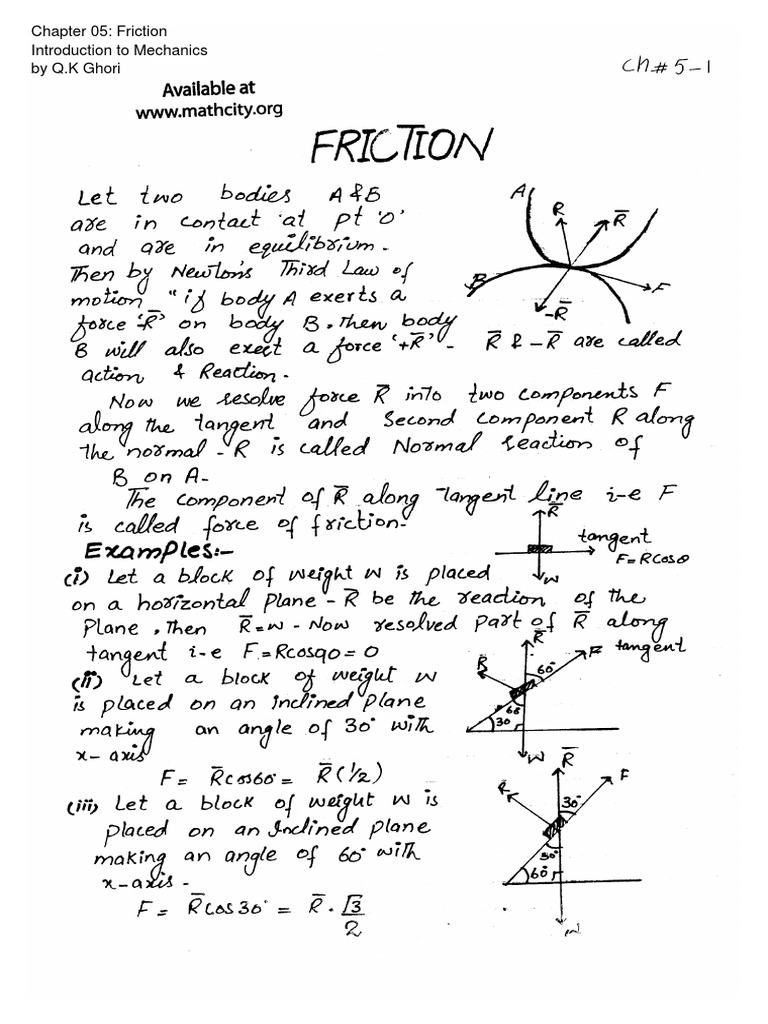 Chapter 05: Friction
Introduction to Mechanics
by Q.K Ghori
Ch# 5-1
Available at
www.mathcity.org
FRICTION
Let two bodies A & B
are in contact at pt 'O'
and are in equilibrium.
Then by Newton's Third Law of
motion "if body A exerts a
force '-R̅' on body B, then body
B will also exect a force '+R̅' - R̅ & -R̅ are called
action & Reaction.
A
R
R̅
B
F
-R̅
Now we resolve force R̅ into two components F
along the tangent and Second component R along
the normal - R is called Normal reaction of
B on A-
The component of R̅ along Tangent line i-e F
is called force of friction-
R̅
tangent
F=RCosθ
W
Examples:-
(i) Let a block of weight W is placed
on a horizontal plane - R̅ be the reaction of the
Plane, Then R̅=w - Now resolved part of R̅ along
tangent i-e F=Rcos90=0
R̅
F tangent
R
60°
60
30
W
(ii) Let a block of weight W
is placed on an Inclined Plane
making an angle of 30° with
x-axis
F = R̅cos60° = R̅(1/2)
(iii) Let a block of weight W is
placed on an Inclined plane
making an angle of 60° with
x-axis -
F = R̅cos30° = R̅ . √3/2
R̅
F
R
30°
30°
60°